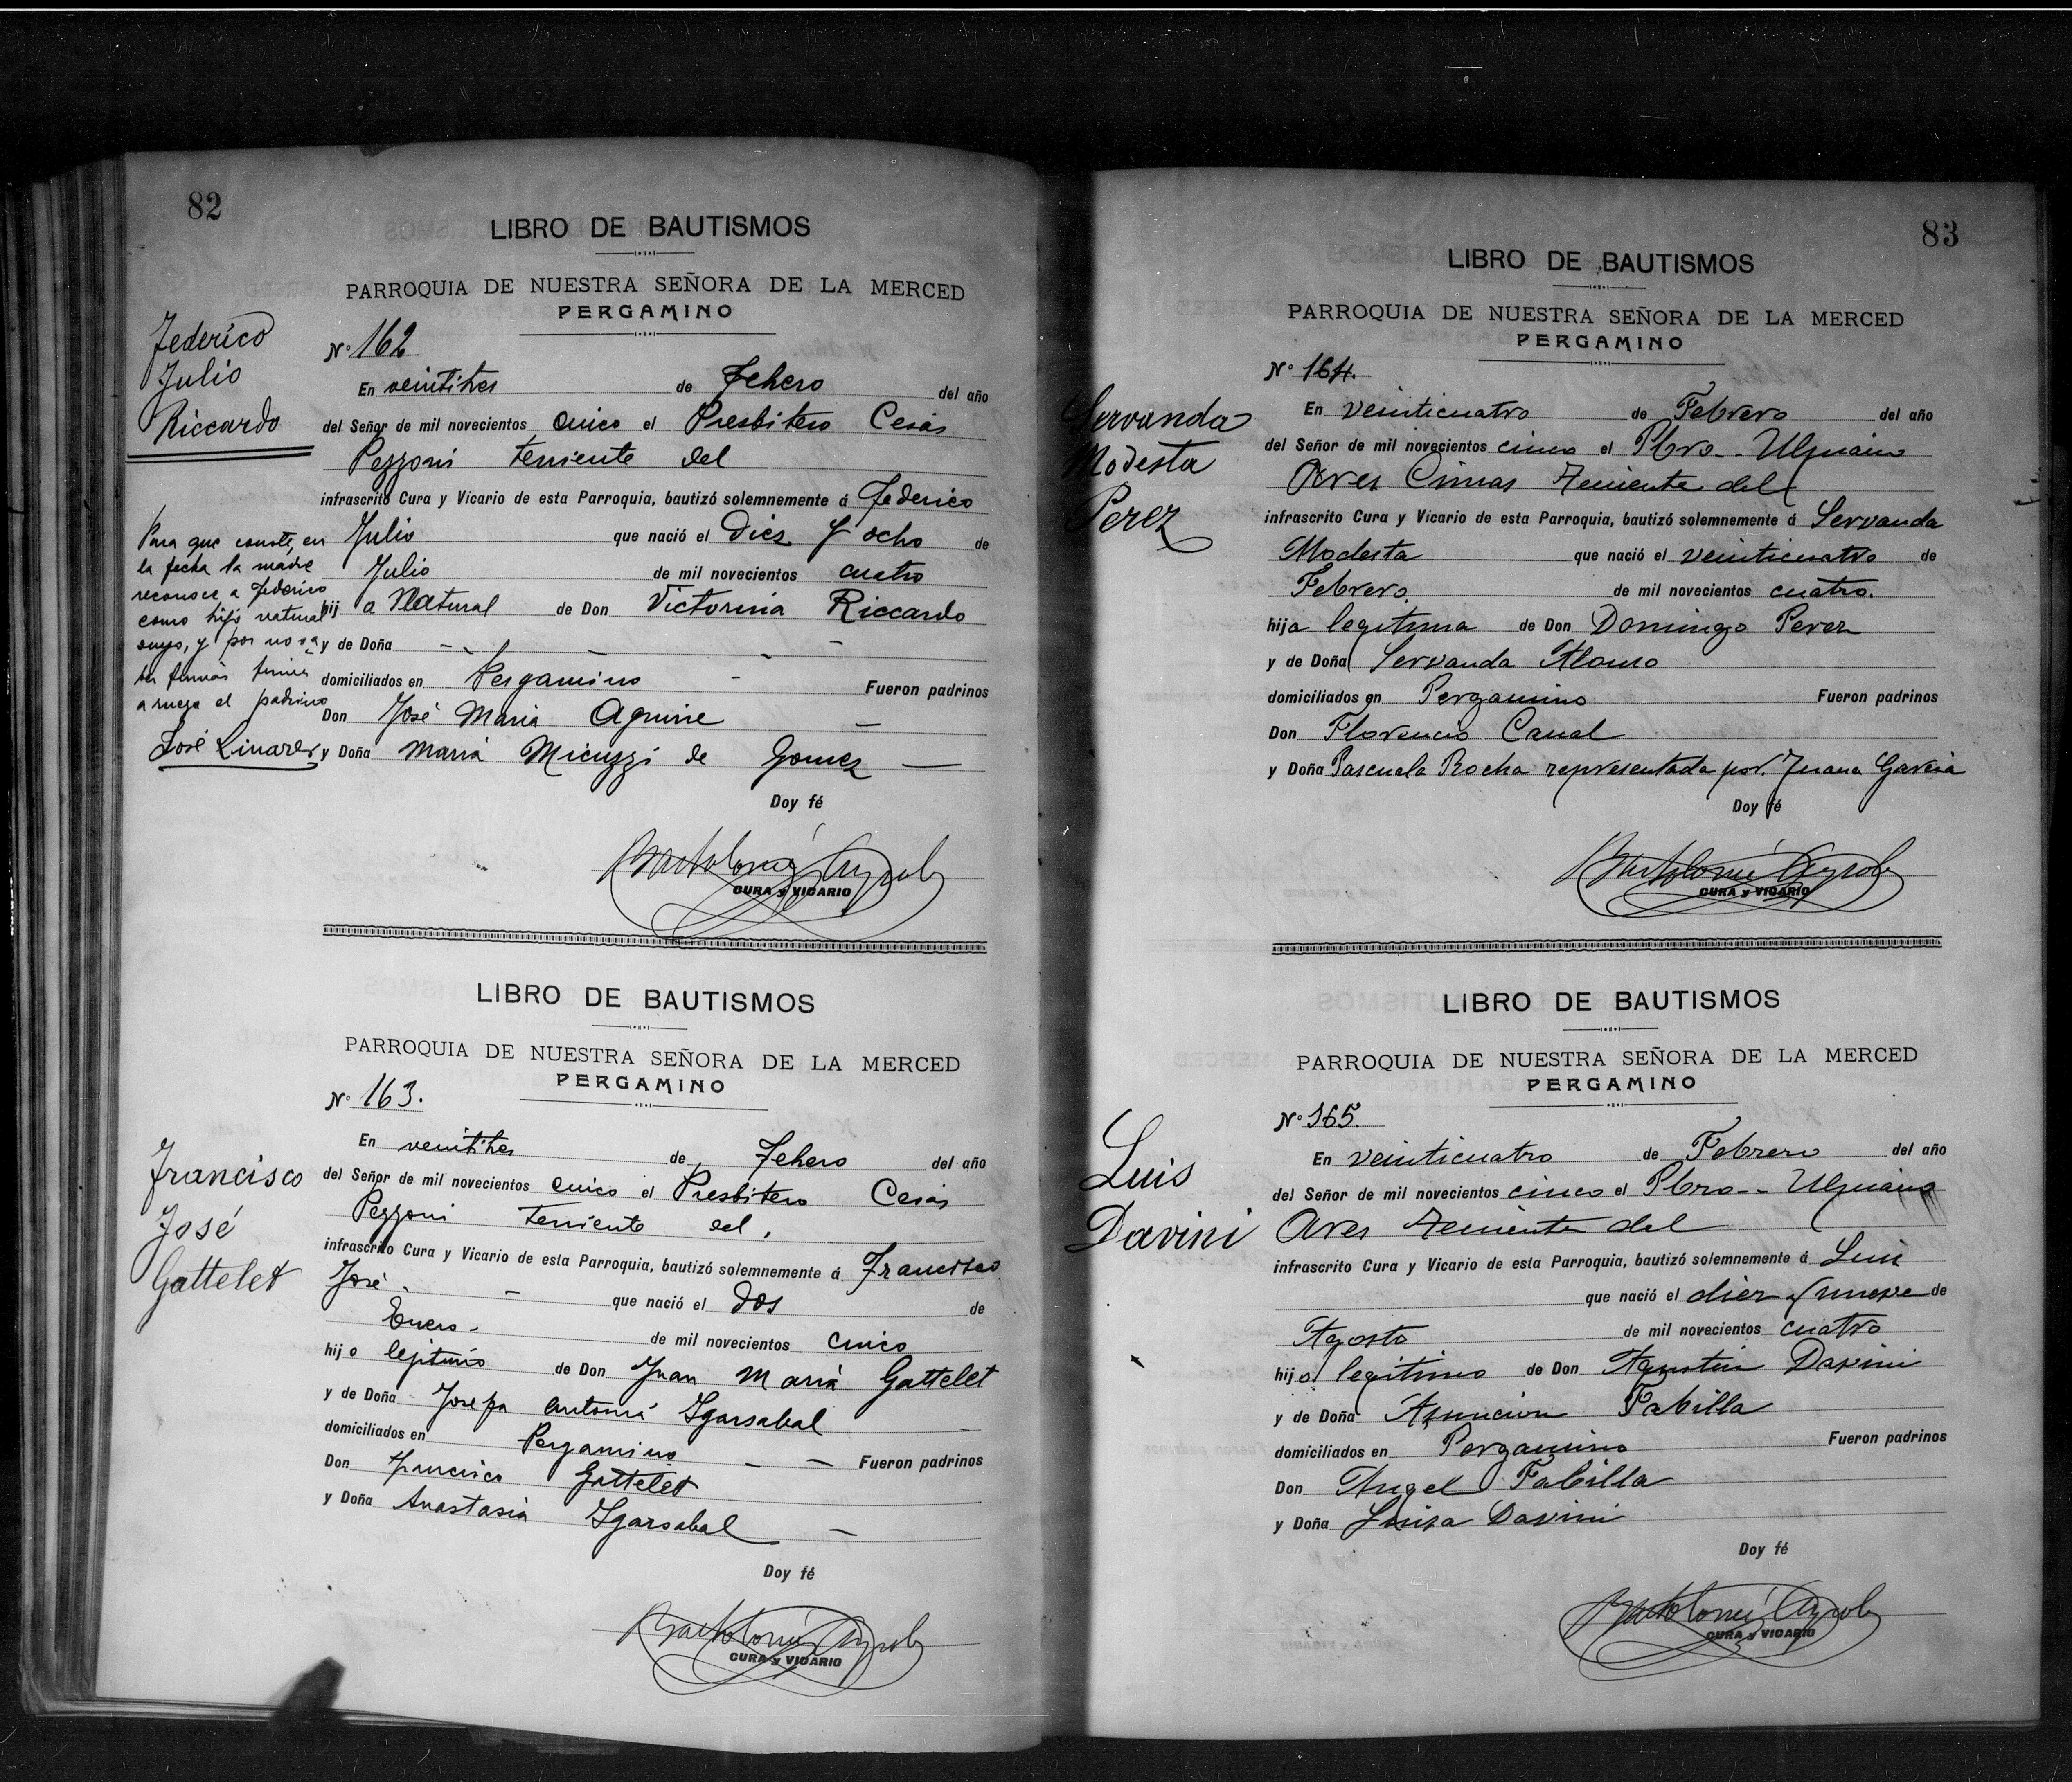 82
LIBRO DE BAUTISMOS
PARROQUIA DE NUESTRA SEÑORA DE LA MERCED
PERGAMINO
Federico
Julio
Riccardo
Nº 162
En veintitres de Febrero del año
del Señor de mil novecientos cinco el Presbitero Cesar
Pezzoni teniente del
infrascrito Cura y Vicario de esta Parroquia, bautizó solemnemente á Federico
Julio que nació el Diez y ocho de
Julio de mil novecientos cuatro
hij a Natural de Don Victorina Riccardo
y de Doña
domiciliados en Pergamino Fueron padrinos
Don José Maria Aguirre
y Doña Maria Micuzzi de Gomez
Doy fé
Para que conste, en
la fecha la madre
reconoce a Federico
como hijo natural
suyo, y por no sa-
ber firmar firma
a ruego el padrino
José Linares
Bartolomé Ayrolo
CURA y VICARIO
LIBRO DE BAUTISMOS
PARROQUIA DE NUESTRA SEÑORA DE LA MERCED
PERGAMINO
Nº 163.
Francisco
José
Gattelet
En veintitres de Febrero del año
del Señor de mil novecientos cinco el Presbitero Cesar
Pezzoni teniente del
infrascrito Cura y Vicario de esta Parroquia, bautizó solemnemente á Francisco
José que nació el dos de
Enero de mil novecientos cinco
hij o legitimo de Don Juan Maria Gattelet
y de Doña Josefa Antonia Ygarsabal
domiciliados en Pergamino Fueron padrinos
Don Francisco Gattelet
y Doña Anastasia Ygarsabal
Doy fé
Bartolomé Ayrolo
CURA y VICARIO
83
LIBRO DE BAUTISMOS
PARROQUIA DE NUESTRA SEÑORA DE LA MERCED
PERGAMINO
Nº 164.
Servanda
Modesta
Perez
En veinticuatro de Febrero del año
del Señor de mil novecientos cinco el Pbro. Ulpiano
Ares Cimas Teniente del
infrascrito Cura y Vicario de esta Parroquia, bautizó solemnemente á Servanda
Modesta que nació el veinticuatro de
Febrero. de mil novecientos cuatro.
hija legitima de Don Domingo Perez
y de Doña Servanda Alonso
domiciliados en Pergamino Fueron padrinos
Don Florencio Canal
y Doña Pascuala Rocha representada por Juana Garcia
Doy fé
Bartolomé Ayrolo
CURA y VICARIO
LIBRO DE BAUTISMOS
PARROQUIA DE NUESTRA SEÑORA DE LA MERCED
PERGAMINO
Nº 165.
Luis
Davini
En veinticuatro de Febrero del año
del Señor de mil novecientos cinco el Pbro. Ulpiano
Ares Teniente del
infrascrito Cura y Vicario de esta Parroquia, bautizó solemnemente á Luis
que nació el diez y nueve de
Agosto de mil novecientos cuatro
hij o legitimo de Don Agustin Davini
y de Doña Asuncion Fabilla
domiciliados en Pergamino Fueron padrinos
Don Angel Fabilla
y Doña Luisa Davini
Doy fé
Bartolomé Ayrolo
CURA y VICARIO